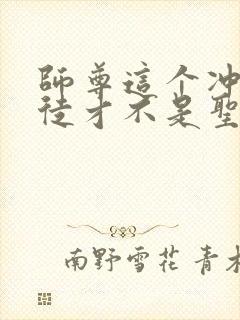 師尊這个冲
徒才不是聖
南野雪花 青木